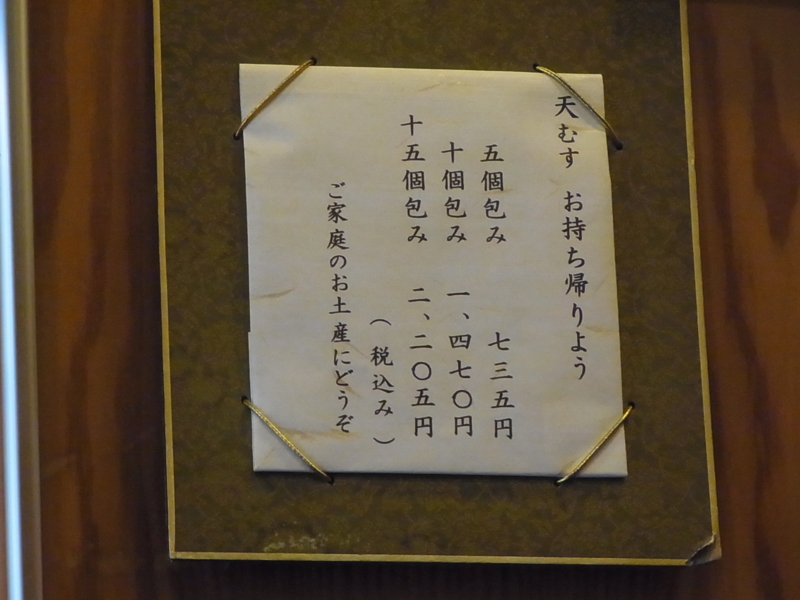 天むす お持ち帰りよう
五個包み 七三五円
十個包み 一、四七〇円
十五個包み 二、二〇五円
（税込み）
ご家庭のお土産にどうぞ